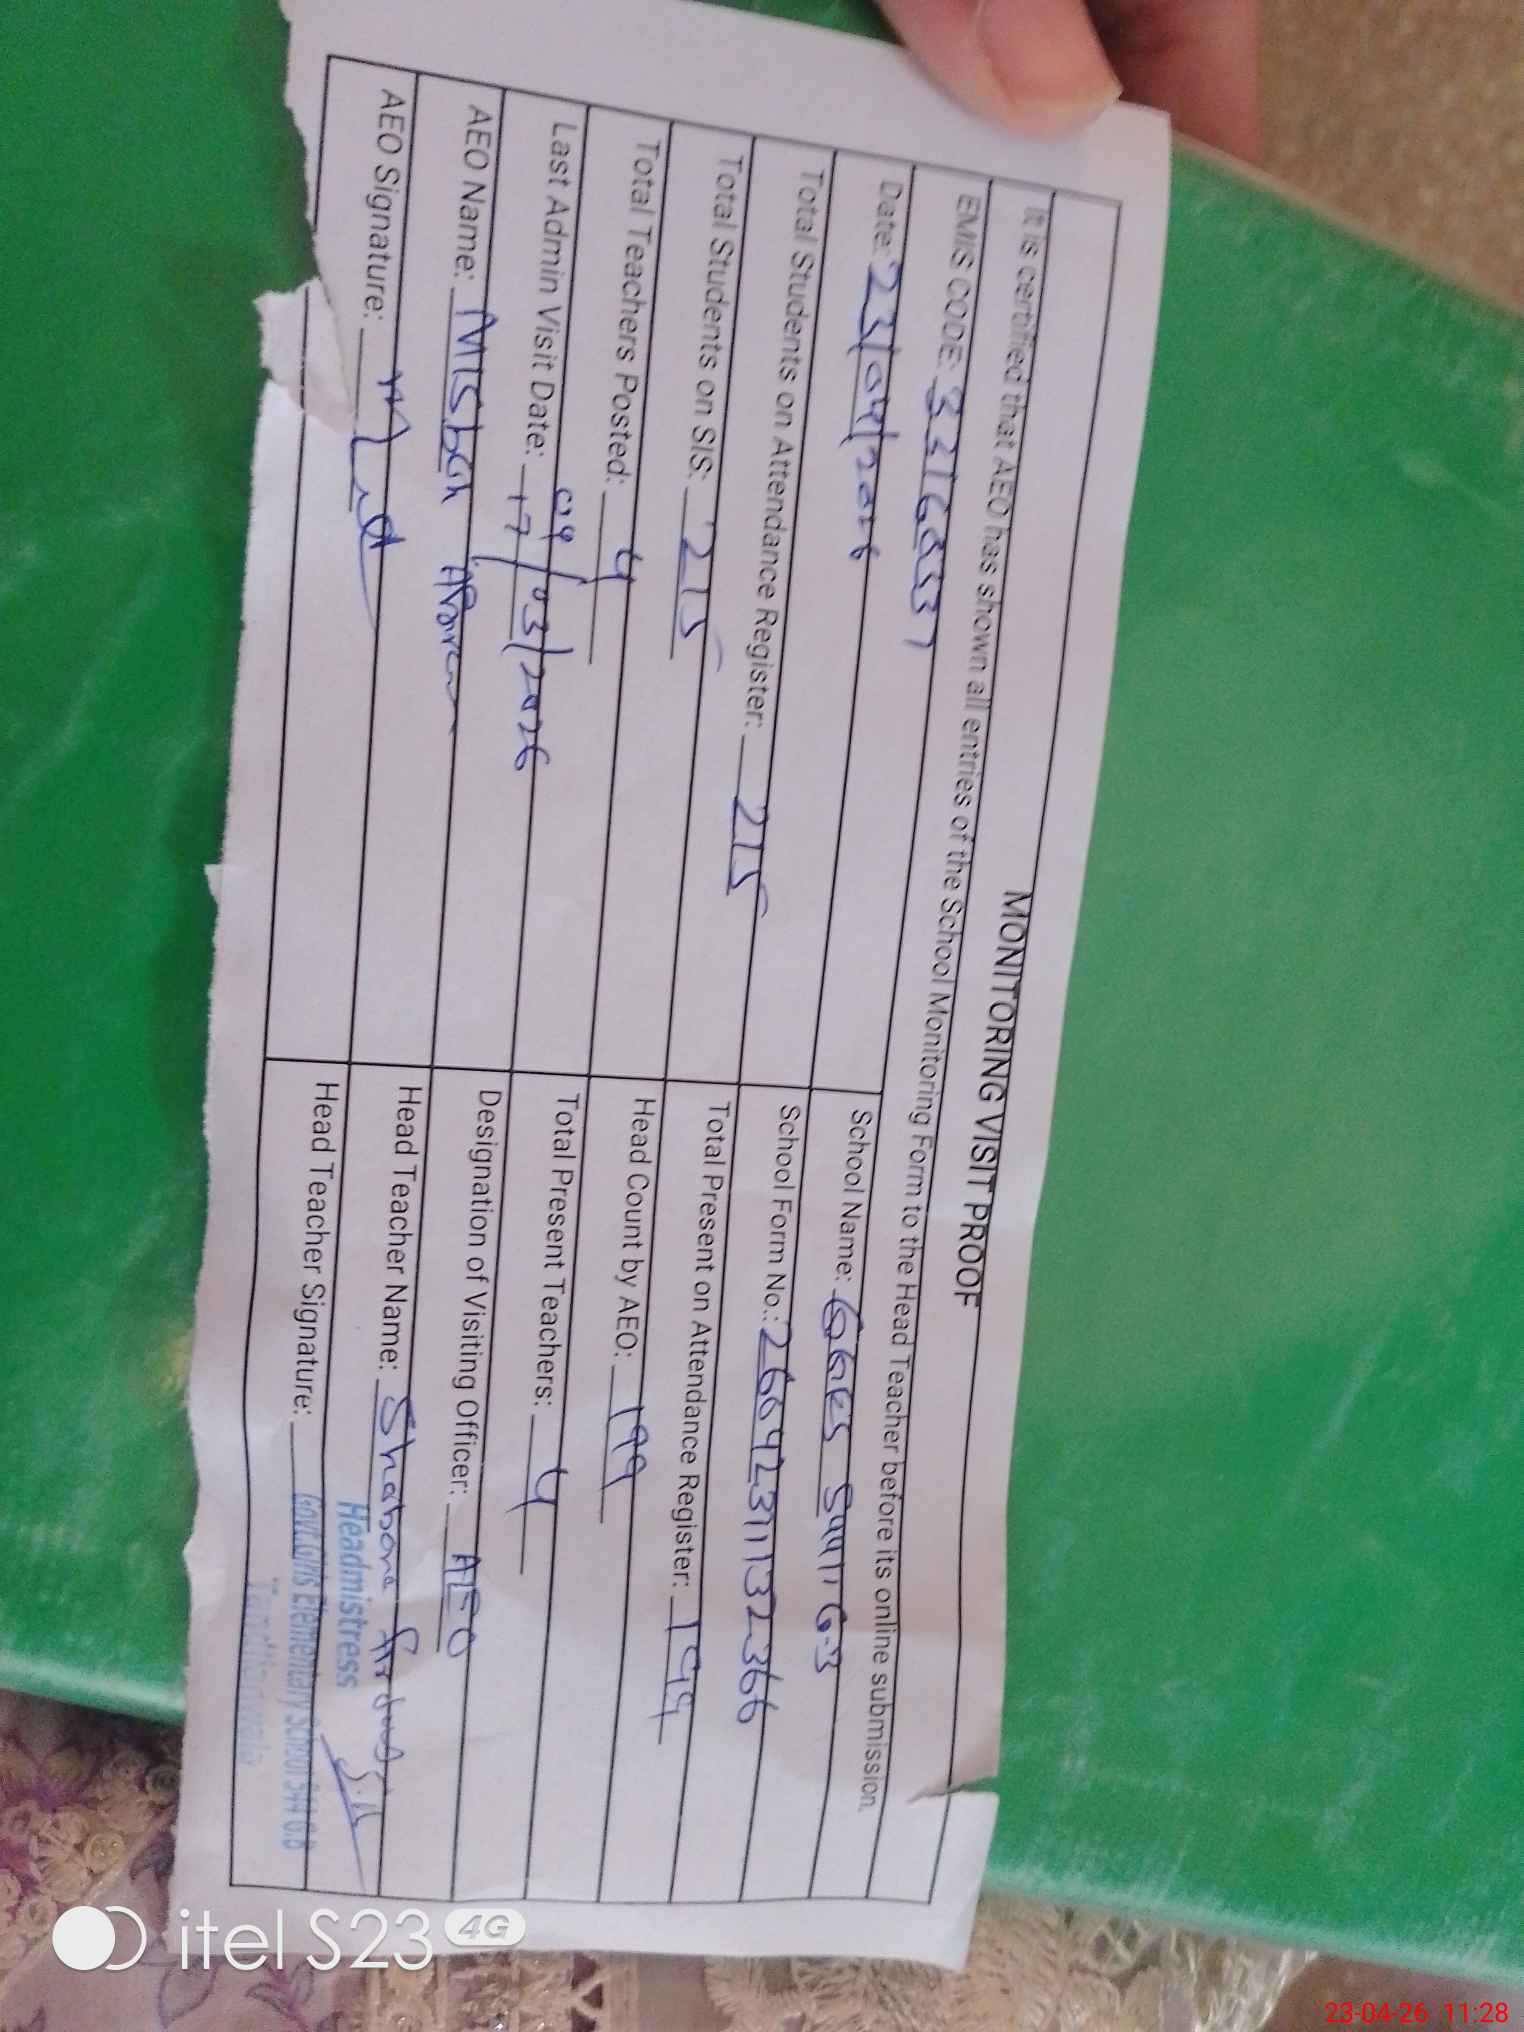 MONITORING VISIT PROOF
It is certified that AEO has shown all entries of the School Monitoring Form to the Head Teacher before its online submission.
EMIS CODE: 33160337
Date: 23/04/2026 School Name: GGES 544 GB
Total Students on Attendance Register: 215 School Form No.: 26042311132366
Total Students on SIS: 215 Total Present on Attendance Register: 199
Total Teachers Posted: 4 Head Count by AEO: 199
Last Admin Visit Date: 17/03/2026 Total Present Teachers: 4
AEO Name: Misbah Designation of Visiting Officer: AEO
AEO Signature: Head Teacher Name: Shabana
Headmistress
Head Teacher Signature:
Govt. Girls Elementary School 544 G.B
Tandlianwala
itel S23 4G
23-04-26 11:28